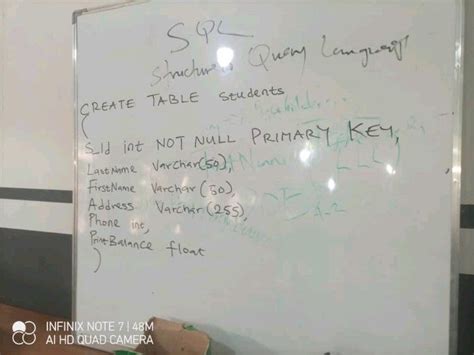 SQL
Structured Query Language
CREATE TABLE students
(
S_Id int NOT NULL PRIMARY KEY,
LastName Varchar(50),
FirstName Varchar(30),
Address Varchar(255),
Phone int,
Balance float
)
INFINIX NOTE 7 | 48M
AI HD QUAD CAMERA